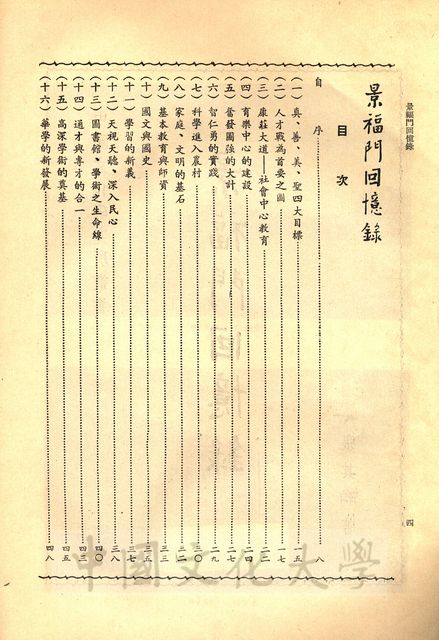 景福門回憶錄
四
景福門回憶錄
目次
自序……八
(一)真、善、美、聖四大目標……一五
(二)人才戰為首要之圖……一七
(三)康莊大道——社會中心教育……二二
(四)育樂中心的建設……二四
(五)奮發圖強的大計……二七
(六)智仁勇的實踐……二九
(七)科學進入農村……三〇
(八)家庭、文明的基石……三二
(九)基本教育與師資……三三
(十)國文與國史……三五
(十一)學習的新義……三七
(十二)天視天聽、深入民心……三八
(十三)圖書館、學術之生命線……四〇
(十四)通才與專才的合一……四三
(十五)高深學術的奠基……四五
(十六)華學的新發展……四八
中國文化大學